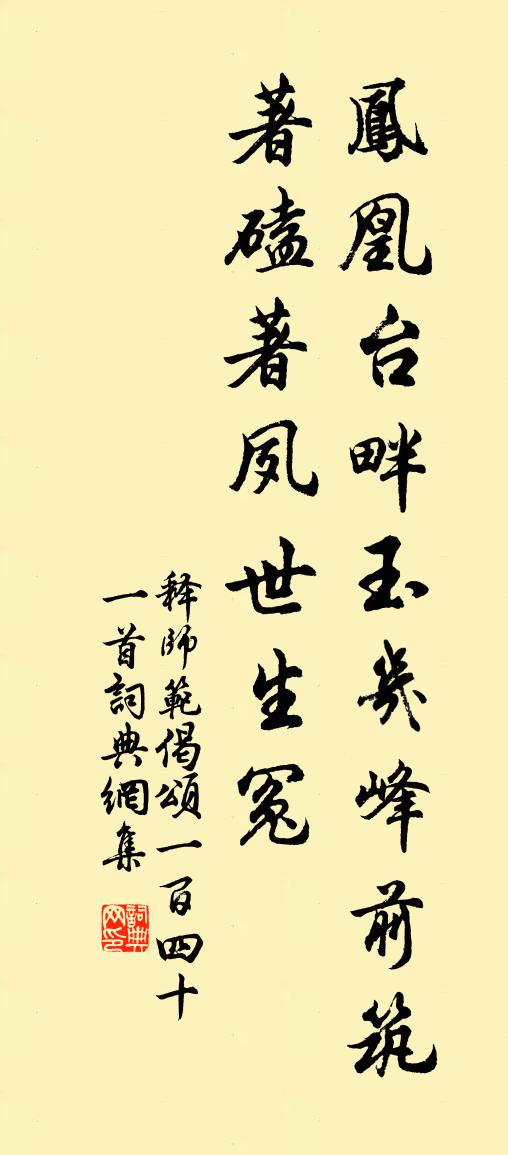 鳳凰台畔玉幾峰前筑
著磕著夙世生冤
釋師範偈頌一百四十
一首詞典網集
詞典网印